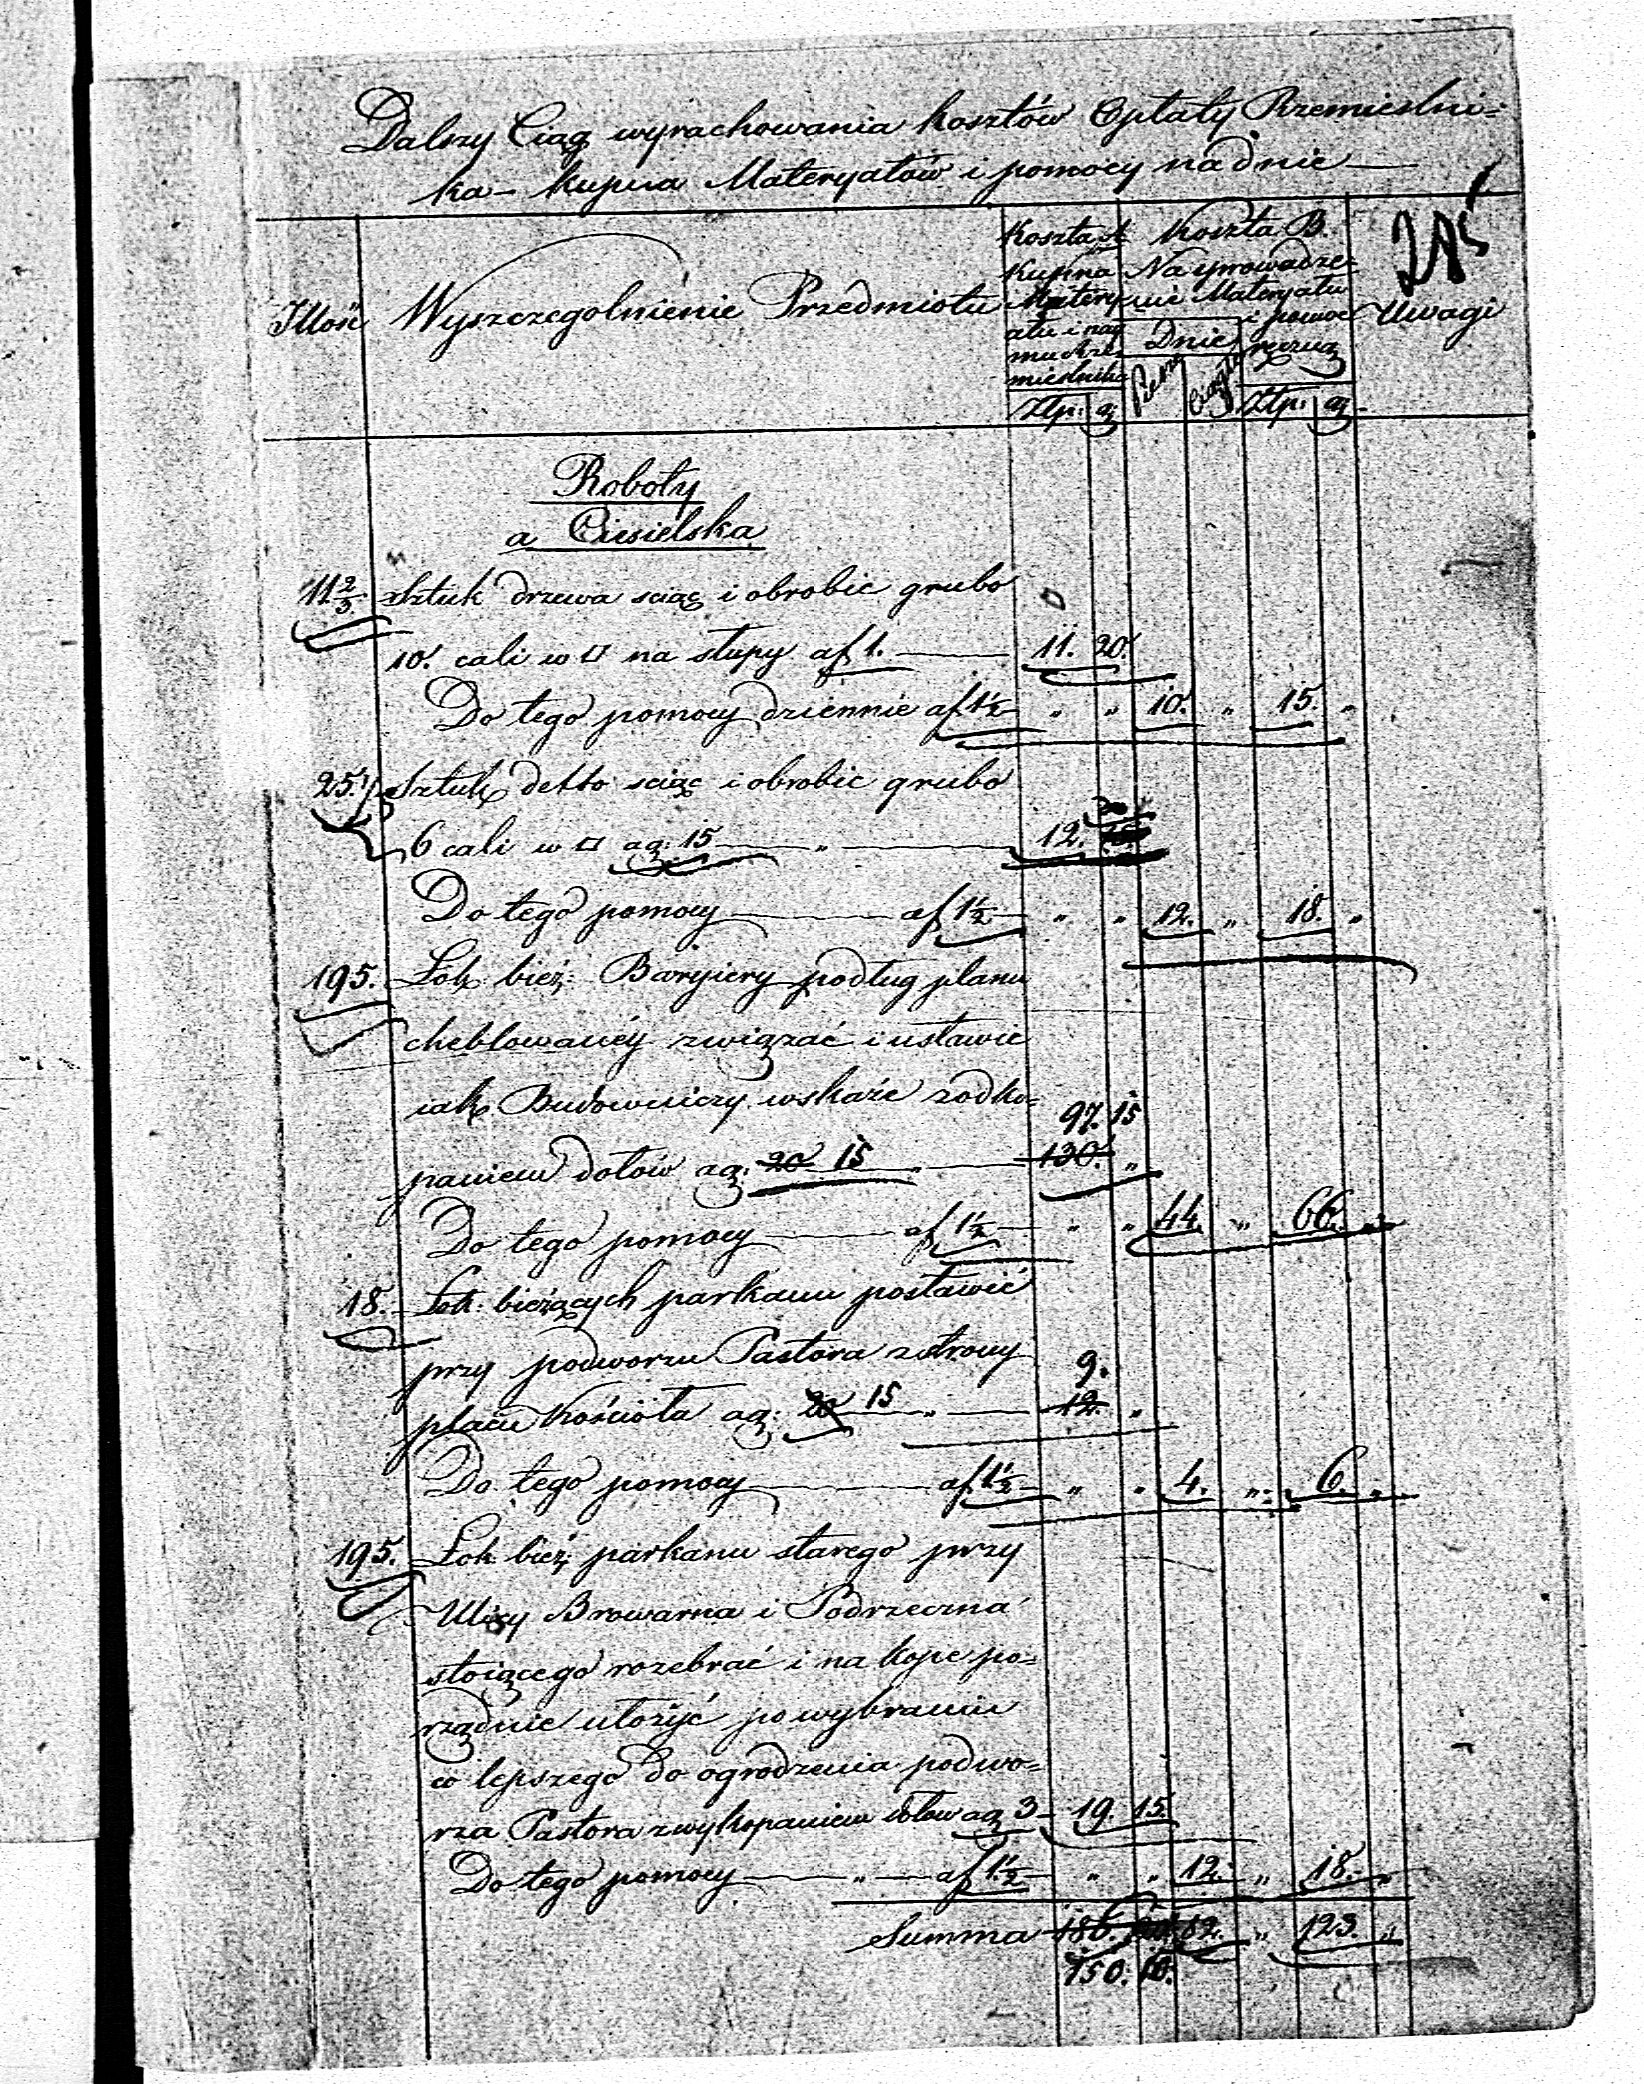 Dalszy Ciąg wyrachowania kosztów Opłaty Rzemieślni=
ka – kupna Materyałów i pomocy na dnie —
285
Illość
Wyszczegolnienie Przedmiotu
Koszta A
kupna
Matery
ału i naj
mu Rze
mieslnika
Złp: g
Koszta B.
Na sprowadze=
nie Materyału
i pomoc
ręczną
Dnie
Piesze
Ciągłe
Złp: g
Uwagi
Roboty
a Ciesielska
11 2/3 Sztuk drzewa sciąć i obrobic grubo
10. cali w □ na słupy af 1. — 11. 20.
Do tego pomocy dziennie af 1½ — „ „ 10. „ 15. „
25. 1/3 Sztuk detto sciąć i obrobic grubo
20
6 cali w □ ag: 15 — „ — 12.
Do tego pomocy — af 1½ — „ „ 12. „ 18. „
195. Łok bież: Baryiery podług planu
cheblowanéy związać i ustawic
iak Budowniczy wskaże z odko=
97. 15
paniem dołów ag: 20 15 „ — 130. „
Do tego pomocy — af 1½ — „ „ 44. „ 66. „
18. Łok: bieżących parkanu postawić
przy podworzu Pastora z strony
9.
placu Kościoła ag: 20 15 „ — 12. „
Do tego pomocy — af 1½ — „ „ 4. „ 6. „
195. Łok bież: parkanu starego przy
Ulicy Browarna i Podrzeczna
stoiącego rozebrać i na kopę po=
rządnie ułożyć po wybraniu
co lepszego do ogrodzenia podwo=
rza Pastora z wykopaniem dołow ag 3 – 19. 15.
Do tego pomocy — „ — af 1½ — „ „ 12. „ 18. „
Summa 180. 20. 82. „ 123. „
150. 10.